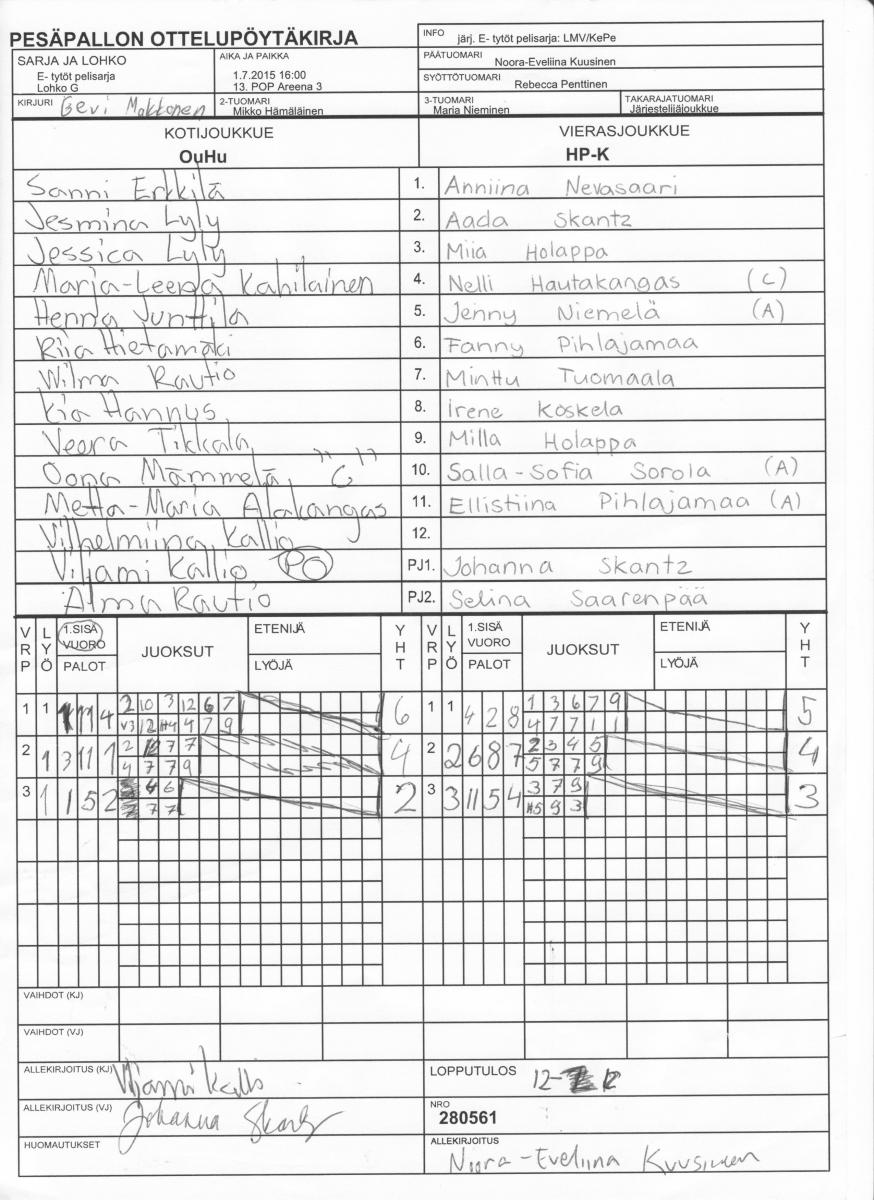 PESÄPALLON OTTELUPÖYTÄKIRJA
INFO järj. E- tytöt pelisarja: LMV/KePe
PÄÄTUOMARI Noora-Eveliina Kuusinen
SYÖTTÖTUOMARI Rebecca Penttinen
SARJA JA LOHKO
E- tytöt pelisarja
Lohko G
AIKA JA PAIKKA
1.7.2015 16:00
13. POP Areena 3
KIRJURI Eevi Makkonen
2-TUOMARI
Mikko Hämäläinen
3-TUOMARI
Maria Nieminen
TAKARAJATUOMARI
Järjestelijäjoukkue
KOTIJOUKKUE VIERASJOUKKUE
OuHu HP-K
Sanni Erkkilä 1. Anniina Nevasaari
Jesmina Lyly 2. Aada Skantz
Jessica Lyly 3. Miia Holappa
Marja-Leena Kahilainen 4. Nelli Hautakangas (C)
Henna Junttila 5. Jenny Niemelä (A)
Riia Hietamäki 6. Fanny Pihlajamaa
Wilma Rautio 7. Minttu Tuomaala
Kia Hannus 8. Irene Koskela
Veera Tikkala 9. Milla Holappa
Oona Mämmelä "C" 10. Salla-Sofia Sorola (A)
Metta-Maria Alakangas 11. Ellistiina Pihlajamaa (A)
Vilhelmiina Kallio 12.
Viljami Kallio PO PJ1. Johanna Skantz
Alma Rautio PJ2. Selina Saarenpää
VRP LYÖ 1.SISÄ VUORO PALOT JUOKSUT ETENIJÄ LYÖJÄ YHT VRP LYÖ 1.SISÄ VUORO PALOT JUOKSUT ETENIJÄ LYÖJÄ YHT
1 1 11 4 2 10 3 12 6 7 6 1 1 4 2 8 1 3 6 7 9 5
V3 12 H4 4 7 9 4 7 7 1 1
2 1 3 11 1 2 10 7 7 4 2 2 6 8 7 2 3 4 5 4
4 7 7 9 5 7 7 9
3 1 1 5 2 4 6 2 3 3 11 5 4 3 7 9 3
7 7 H5 9 3
VAIHDOT (KJ)
VAIHDOT (VJ)
ALLEKIRJOITUS (KJ) Viljami Kallio
LOPPUTULOS 12-12
ALLEKIRJOITUS (VJ) Johanna Skantz
NRO
280561
HUOMAUTUKSET
ALLEKIRJOITUS
Noora-Eveliina Kuusinen